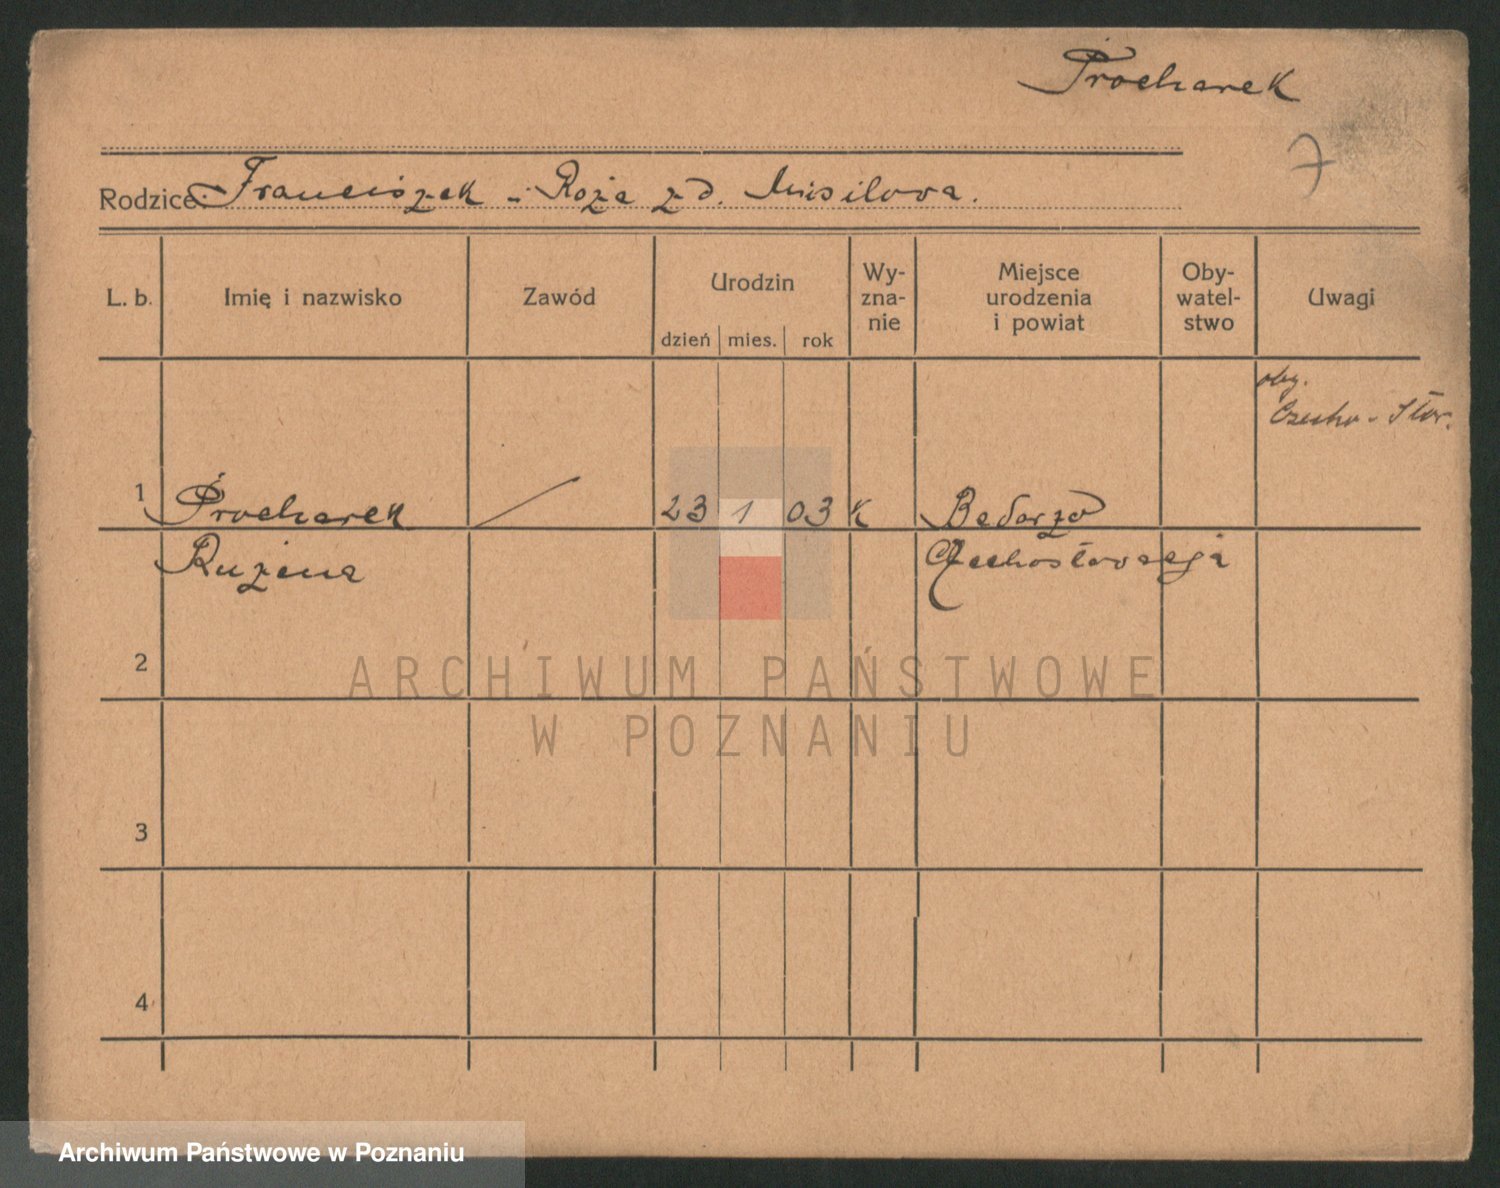 Procharek
7
Rodzice: Franciszek - Róże zd. Musilova.
L. b.
Imię i nazwisko
Zawód
Urodzin
dzień mies. rok
Wy-
zna-
nie
Miejsce
urodzenia
i powiat
Oby-
watel-
stwo
Uwagi
oby.
Czecho-Słow.
1 Procharek 23 1 03 K
Rużena Czechosłowacja
2
3
4
ARCHIWUM PAŃSTWOWE
W POZNANIU
Archiwum Państwowe w Poznaniu